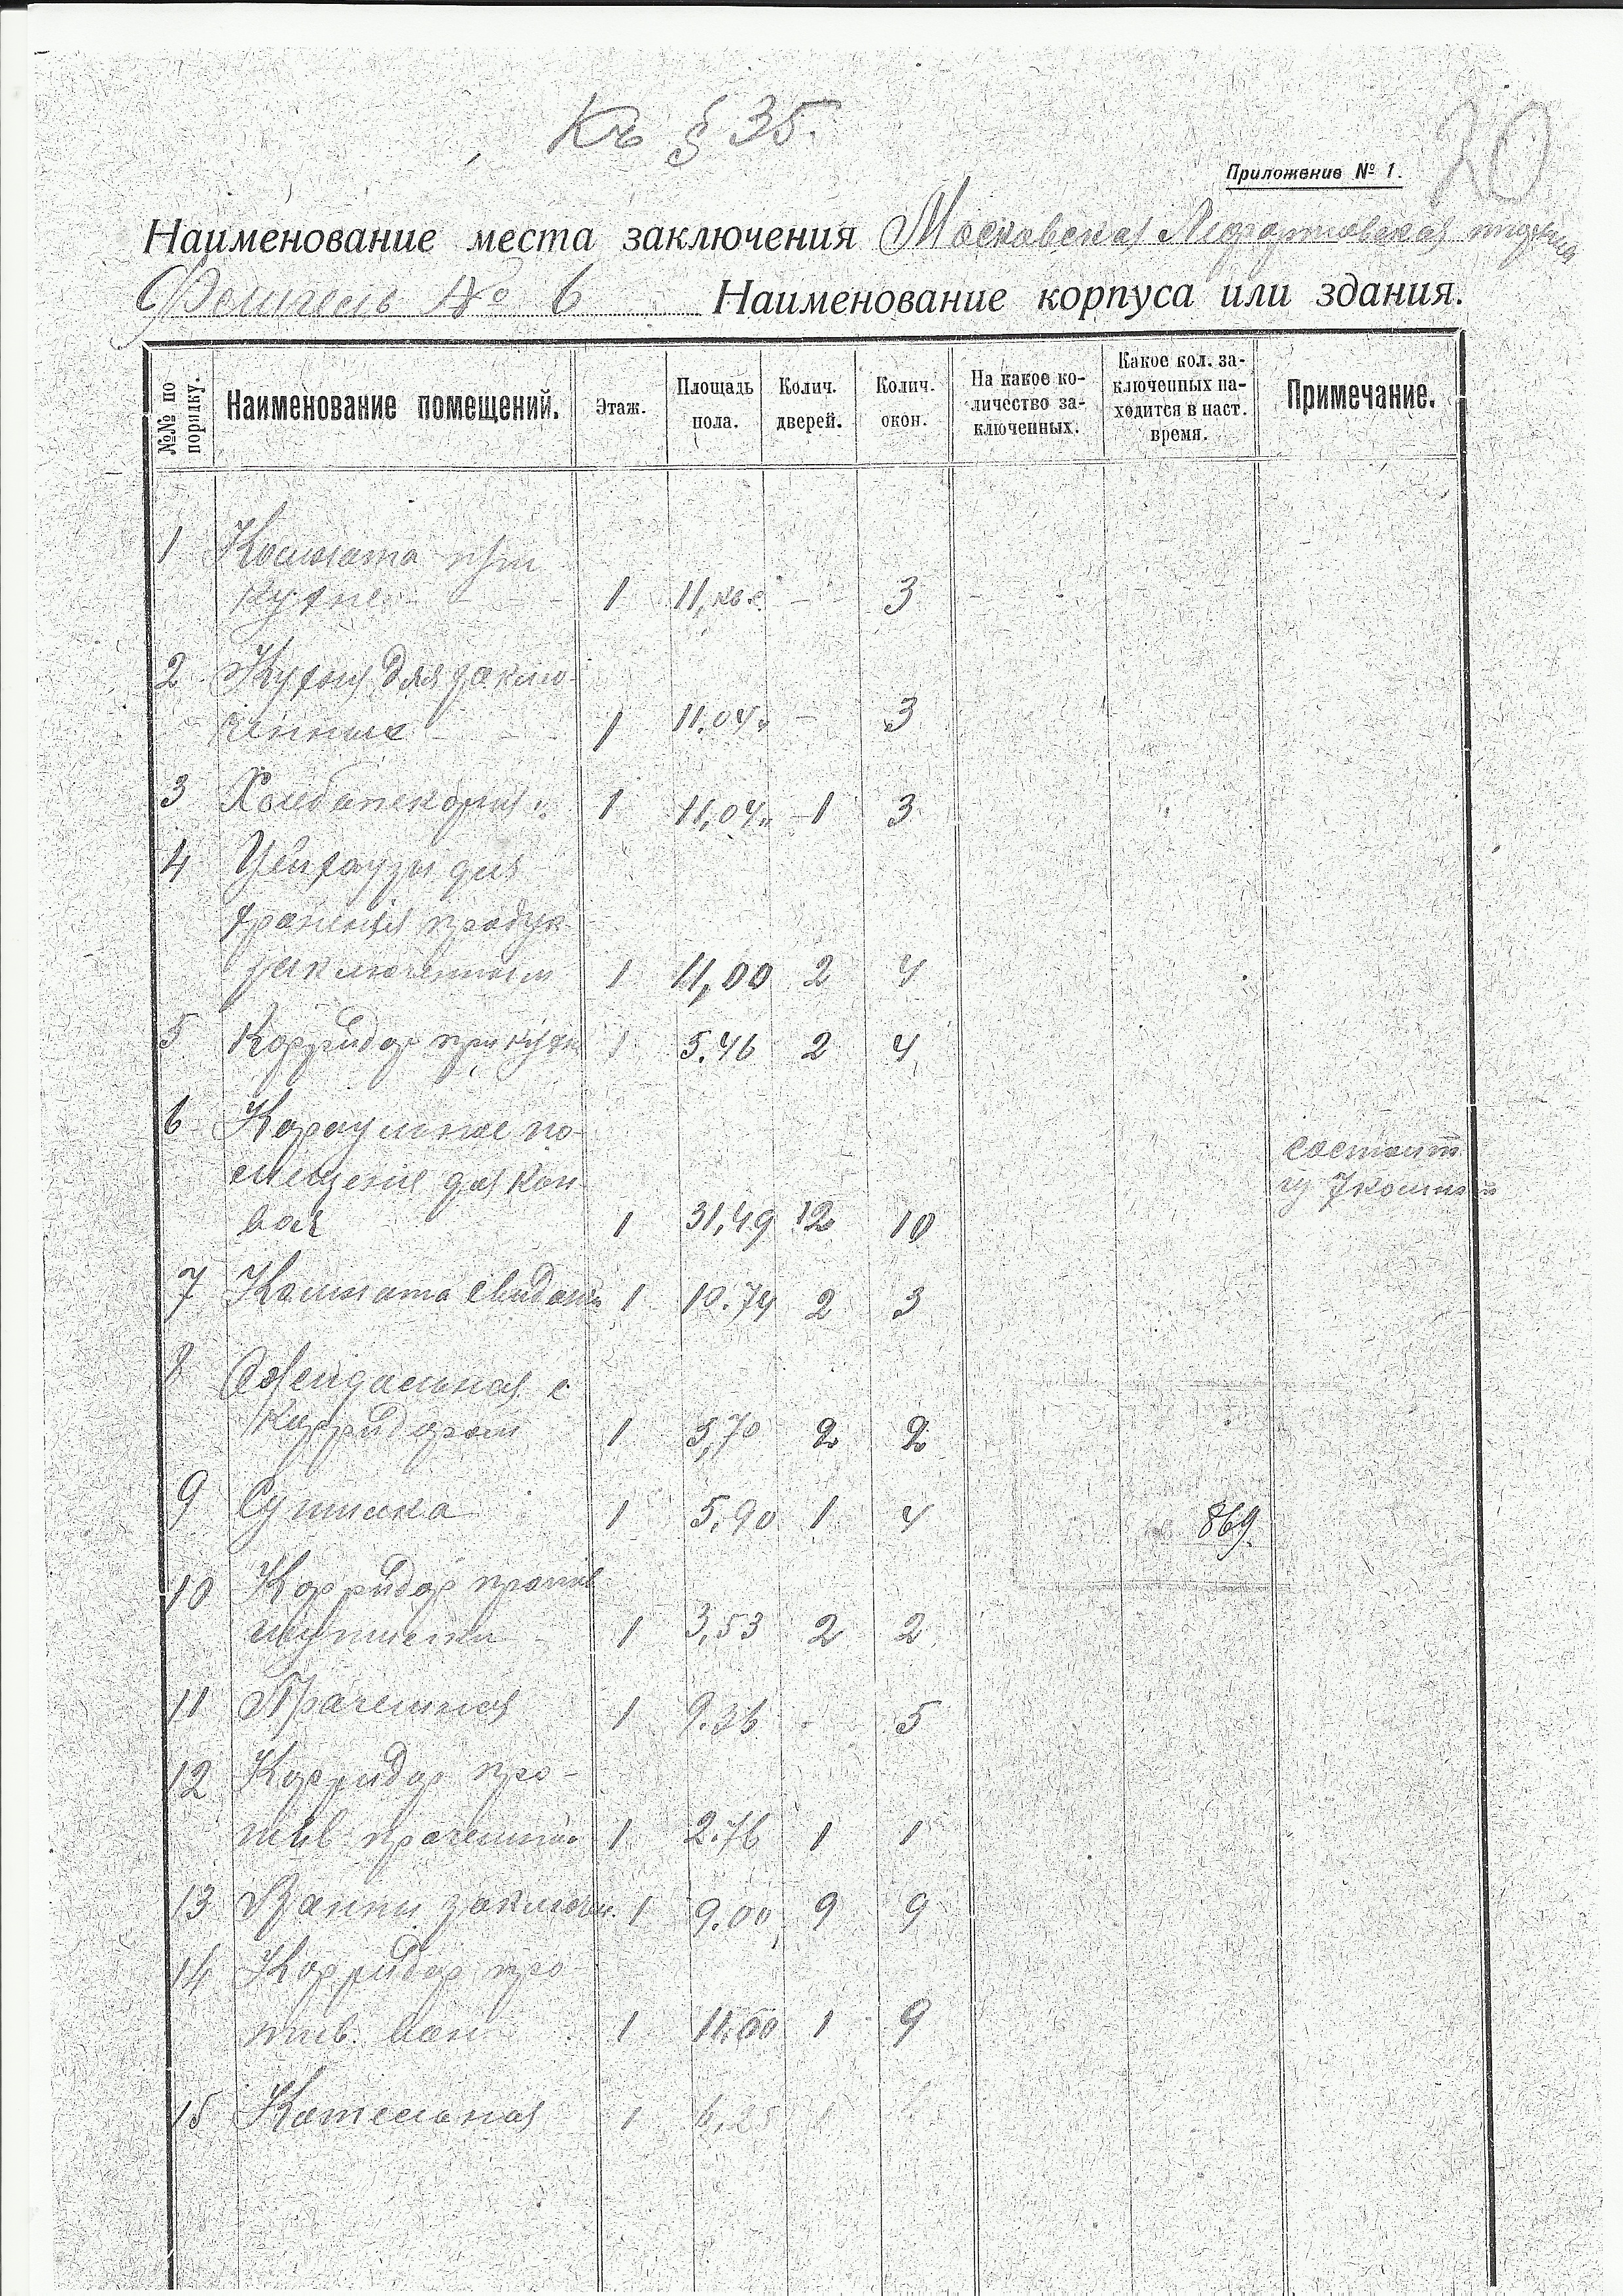 Къ § 35.
20
Приложение № 1.
Наименование места заключения Московская Лефортовская тюрьма
Флигель № 6 Наименование корпуса или здания.
№№ по порядку. Наименование помещений. Этаж. Площадь пола. Колич. дверей. Колич. окон. На какое количество заключенных. Какое кол. заключенных находится в наст. время. Примечание.
1 Комната при
кухне - - - 1 11, кв.с. - 3
2 Кухня для заклю-
ченных - - 1 11.04 " - 3
3 Хлебопекарня 1 11,04 " 1 3
4 Цейхаузы для
хранения продук
заключенным 1 11,00 2 4
5 Корридор при кухн 1 5.46 2 4
6 Караульное по-
мещение для кон- состоит
воя 1 31,49 12 10 из 7 комнат
7 Комната свидан 1 10.74 2 3
8 Ожидальная с
корридором 1 5,70 2 2
9 Сушилка 1 5.90 1 4 869.
10 Корридор против
сушилки 1 3,53 2 2
11 Прачешная 1 9.36 - 5
12 Корридор про-
тив прачешной 1 2.76 1 1
13 Ванны заключ. 1 9.00 9 9
14 Корридор про-
тив. ван 1 11.60 1 9
15 Котельная 1 6,25 1